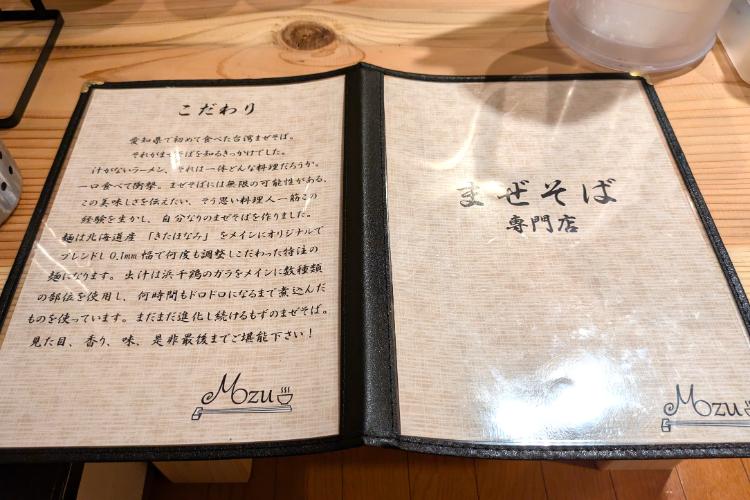 こだわり
愛知県で初めて食べた台湾まぜそば。
それがまぜそばを知るきっかけでした。
汁がないラーメン、それは一体どんな料理だろうか。
一口食べて衝撃。まぜそばには無限の可能性がある、
この美味しさを伝えたい、そう思い料理人一筋この
経験を生かし、自分なりのまぜそばを作りました。
麺は北海道産「きたほなみ」をメインにオリジナルで
ブレンドし0.1mm幅で何度も調整しこだわった特注の
麺になります。出汁は浜千鶏のガラをメインに数種類
の部位を使用し、何時間もドロドロになるまで煮込んだ
ものを使っています。まだまだ進化し続けるもずのまぜそば。
見た目、香り、味、是非最後までご堪能下さい!
Mozu
まぜそば
専門店
Mozu